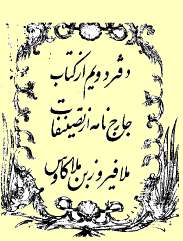 دفتر دویم از کتاب
جارج نامه از تصنیفات
ملا فیروز بن ملا کاوس